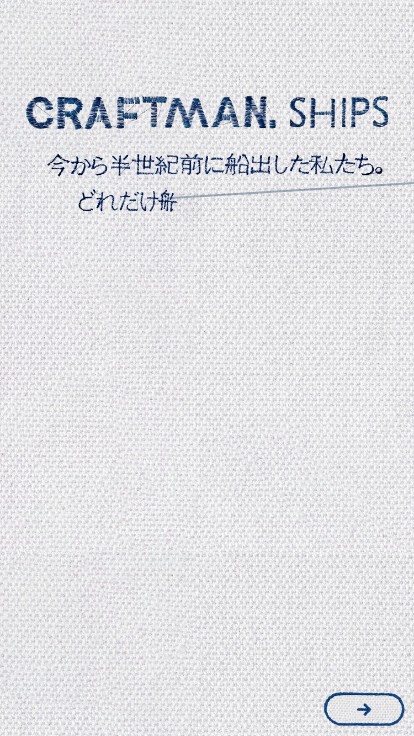 CRAFTMAN. SHIPS
今から半世紀前に船出した私たち。
どれだけ船